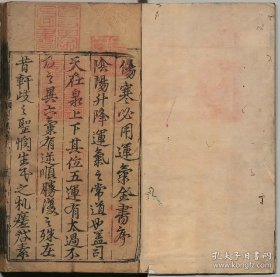 傷寒必用運氣全書序
陰陽升降運氣之常道也蓋司
天在泉上下其位五運有太過不
及之異六氣有逆順勝復之殊在
昔軒岐之聖憫生民之札瘥啓素
孔夫子旧书网